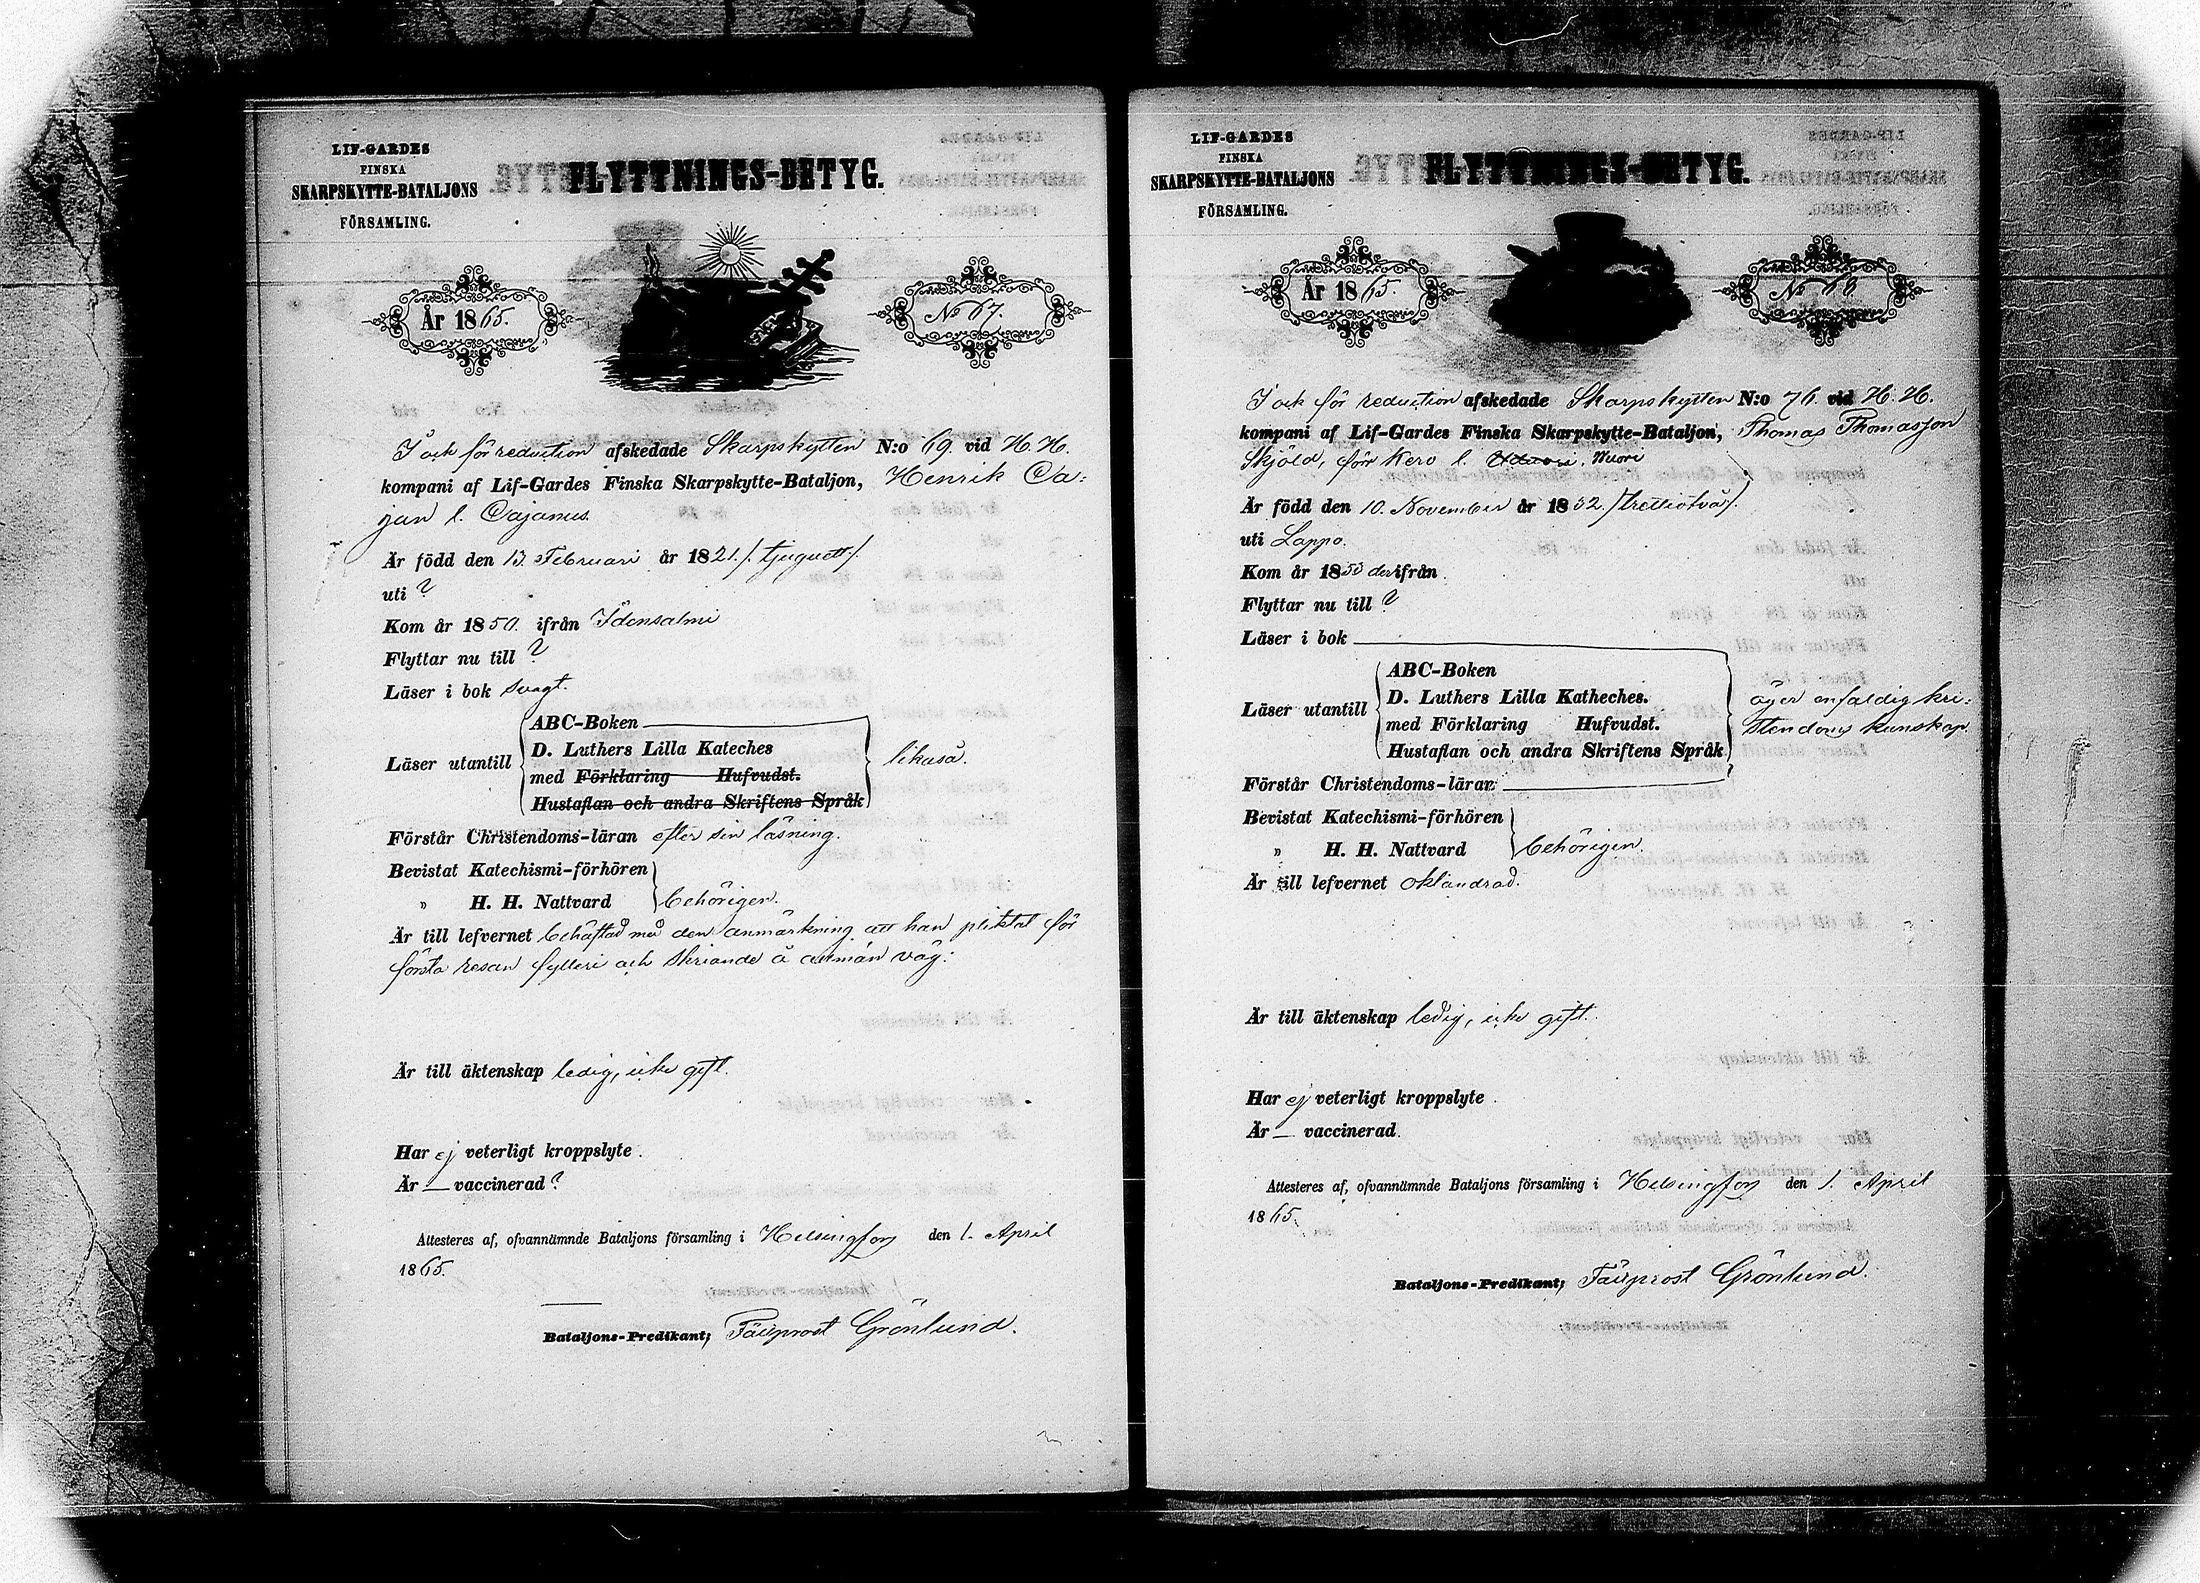 LIF-GARDES
FINSKA
SKARPSKYTTE-BATALJONS
FÖRSAMLING.
FLYTTNINGS-BETYG.
År 1865.
No 67.
I och för reduction afskedade Skarpskytten N:o 69. vid H. H.
kompani af Lif-Gardes Finska Skarpskytte-Bataljon, Henrik Ca:
jan l. Cajanus.
Är född den 13. Februari år 1821./.tjuguett/.
uti ?
Kom år 1850. ifrån Idensalmi
Flyttar nu till ?
Läser i bok svagt.
Läser utantill
ABC-Boken
D. Luthers Lilla Kateches
med Förklaring Hufvudst.
Hustaflan och andra Skriftens Språk
likaså.
Förstår Christendoms-läran efter sin läsning.
Bevistat Katechismi-förhören
" H. H. Nattvard behörigen.
Är till lefvernet behäftad med den anmärkning att han pliktat för
första resan fylleri och skriande å allmän väg:
Är till äktenskap ledig, icke gift.
Har ej veterligt kroppslyte.
Är — vaccinerad?
Attesteres af, ofvannämnde Bataljons församling i Helsingfors den 1. April
1865.
Bataljons-Predikant; Fältprost Grönlund.
LIF-GARDES
FINSKA
SKARPSKYTTE-BATALJONS
FÖRSAMLING.
FLYTTNINGS-BETYG.
År 1865.
No 68.
I och för reduction afskedade Skarpskytten N:o 76. vid H. H.
kompani af Lif-Gardes Finska Skarpskytte-Bataljon, Thomas Thomasson
Skjöld, förr Kero l. Nuori
Är född den 10. November år 1832./trettiotvå/.
uti Lappo.
Kom år 1853 derifrån.
Flyttar nu till ?
Läser i bok
Läser utantill
ABC-Boken
D. Luthers Lilla Katheches.
med Förklaring Hufvudst.
Hustaflan och andra Skriftens Språk
äger enfaldig kri:
stendoms kunskap.
Förstår Christendoms-läran
Bevistat Katechismi-förhören
" H. H. Nattvard behörigen.
Är till lefvernet oklandrad.
Är till äktenskap ledig, icke gift.
Har ej veterligt kroppslyte.
Är — vaccinerad.
Attesteres af, ofvannämnde Bataljons församling i Helsingfors den 1. April
1865.
Bataljons-Predikant; Fältprost Grönlund.